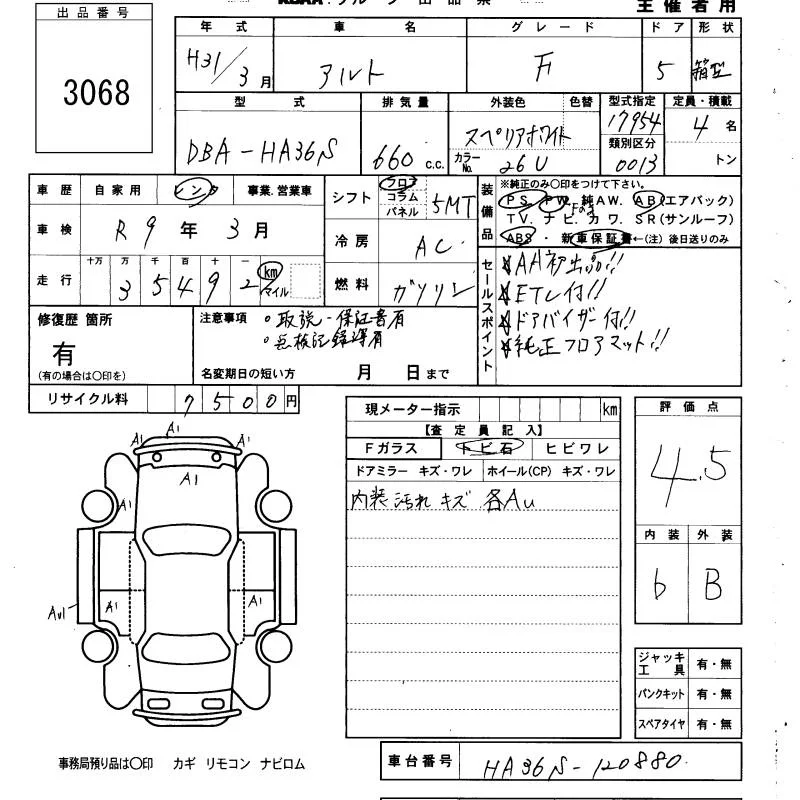 出品番号
3068
主催者用
年式 車名 グレード ドア 形状
H31/3月 アルト F 5 箱型
型式 排気量 外装色 色替 型式指定 定員・積載
DBA-HA36S 660 c.c. スペリアホワイト 17954 4名
カラーNo. 26U 類別区分 0013 トン
車歴 自家用 レンタ 事業.営業車
車検 R9年3月
走行 十万 万 千 百 十 一
35492 km マイル
シフト フロア コラム パネル 5MT
冷房 AC
燃料 ガソリン
装備品
※純正のみ○印をつけて下さい。
PS. PW. 純AW. AB(エアバック)
TV. ナビ. カワ. SR(サンルーフ)
ABS・新車保証書←(注)後日送りのみ
セールスポイント
AA初出品!!
ETC付!!
ドアバイザー付!!
純正フロアマット!!
修復歴 箇所
有
(有の場合は○印を)
注意事項
・取説・保証書有
・点検記録簿有
名変期日の短い方 月 日まで
リサイクル料 7500円
現メーター指示 km
【査定員記入】
Fガラス トビ石 ヒビワレ
ドアミラー キズ・ワレ ホイール(CP) キズ・ワレ
内装 汚れ キズ 各Au
評価点
4.5
内装 外装
b B
A1
A1 A1
A1
A1
A1 A1
AU1
ジャッキ工具 有・無
パンクキット 有・無
スペアタイヤ 有・無
事務局預り品は○印 カギ リモコン ナビロム
車台番号 HA36S-120880